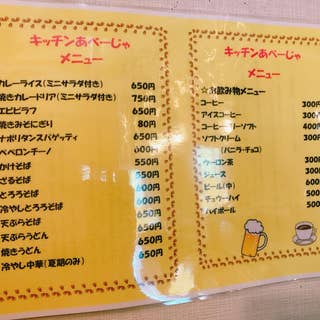 キッチンあべーじゃ
メニュー
カレーライス(ミニサラダ付き) 650円
焼きカレードリア(ミニサラダ付き) 750円
エビピラフ 650円
焼きみそにぎり 80円
ナポリタンスパゲッティ 650円
ペペロンチーノ 600円
かけそば 500円
ざるそば 550円
とろろそば 600円
冷やしとろろそば 600円
天ぷらそば 650円
天ぷらうどん 650円
焼きうどん 550円
冷やし中華(夏期のみ) 650円
キッチンあべーじゃ
メニュー
☆お飲み物メニュー
コーヒー 300円
アイスコーヒー 300円
コーヒーソフト 400円
ソフトクリーム 300円
(バニラ・チョコ)
ウーロン茶
ジュース
ビール(中)
チューハイ
ハイボール